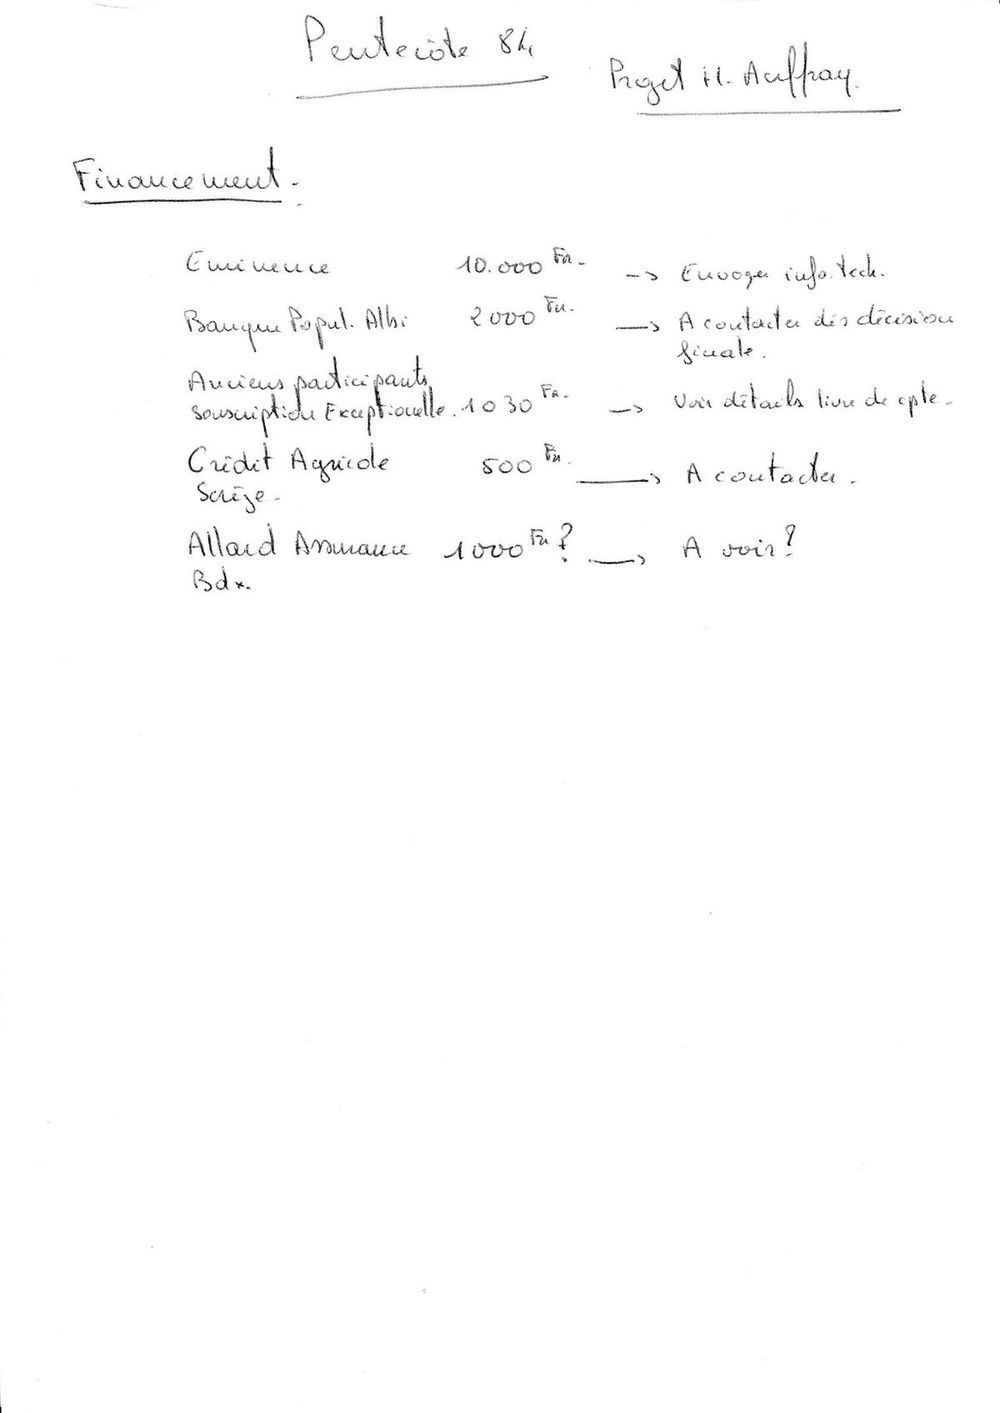 Pentecôte 84
Projet H. Auffray.
Financement.
Eminence 10.000 Fr. -> Envoyer info. tech.
Banque Popul. Albi 2000 Fr. -> A contacter dès décision
finale.
Anciens participants
Souscription Exceptionelle. 1030 Fr. -> Voir détails livre de cpte.
Crédit Agricole 500 Fr. -> A contacter.
Allard Assurance 1000 Fr ? -> A voir ?
Bdx.